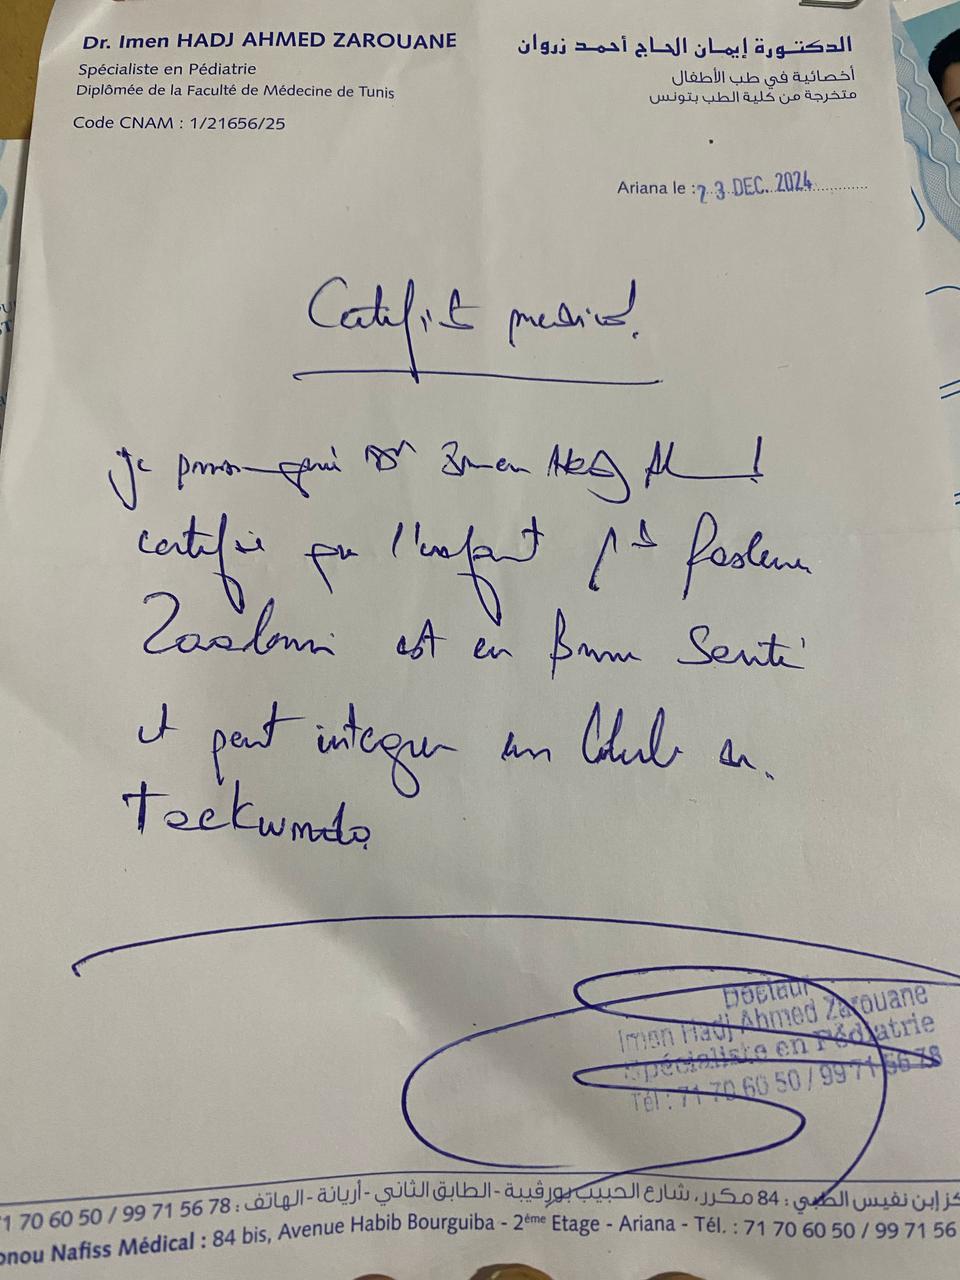 Dr. Imen HADJ AHMED ZAROUANE
Spécialiste en Pédiatrie
Diplômée de la Faculté de Médecine de Tunis
Code CNAM : 1/21656/25
الدكتورة إيمان الحاج أحمد زروان
أخصائية في طب الأطفال
متخرجة من كلية الطب بتونس
Ariana le : 23 DEC. 2024
Certificat medical
je Dr Imen Hadj
certifie que l'enfant
est en Bonne Santé
et peut integrer un en
Taekwondo
Docteur
Imen Hadj Ahmed Zarouane
Spécialiste en Pédiatrie
Tél : 71 70 60 50 / 99 71 56 78
كز إبن نفيس الطبي : 84 مكرر، شارع الحبيب بورقيبة - الطابق الثاني - أريانة - الهاتف : 71 70 60 50 / 99 71 56 78
onou Nafiss Médical : 84 bis, Avenue Habib Bourguiba - 2ème Etage - Ariana - Tél. : 71 70 60 50 / 99 71 56